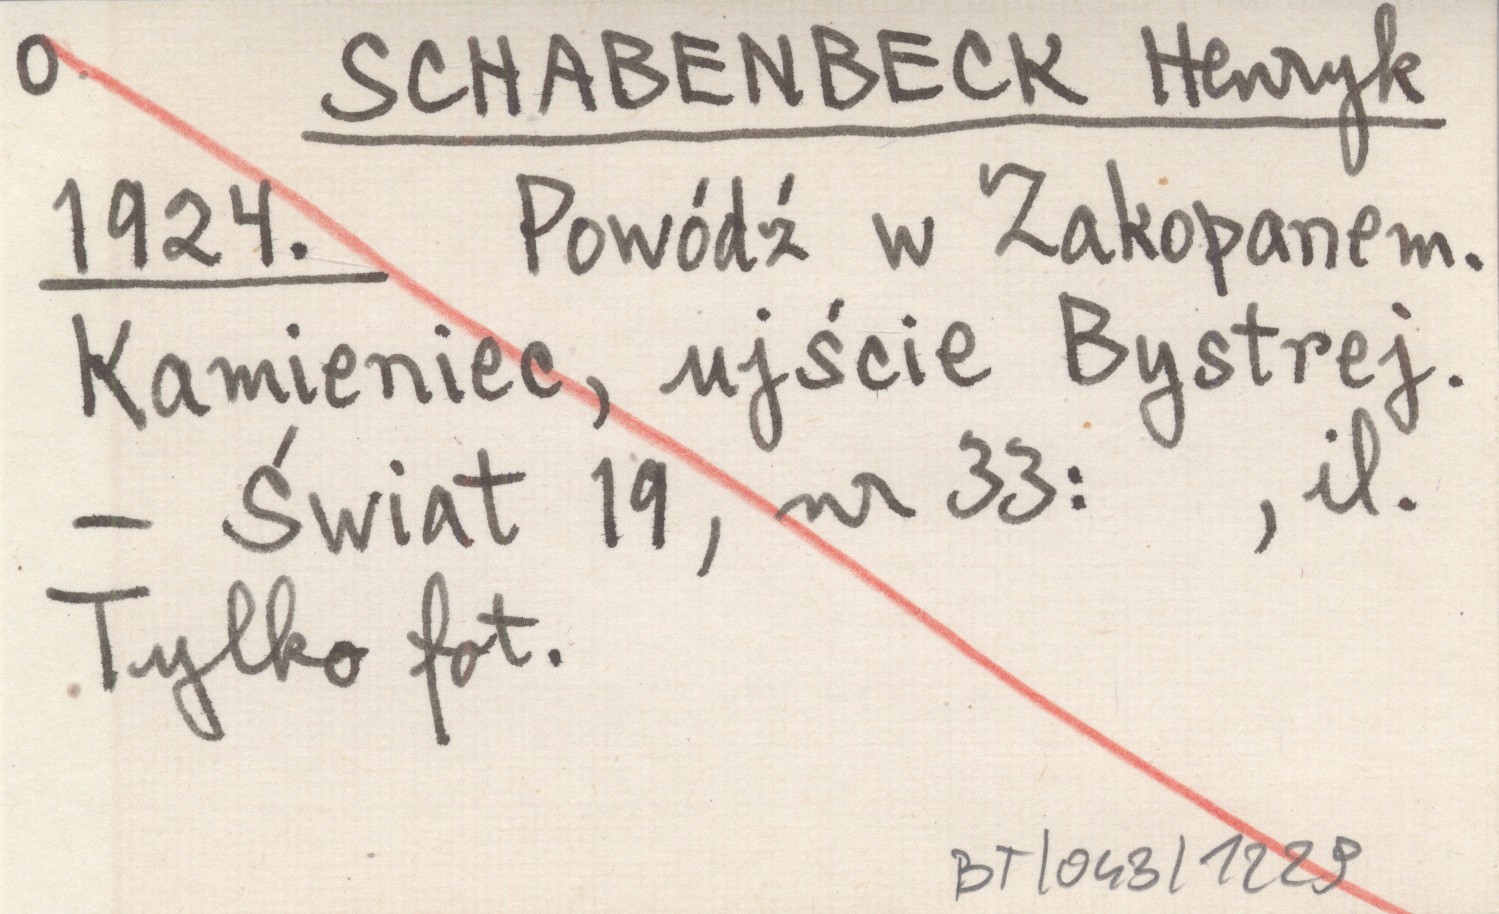 o. SCHABENBECK Henryk
1924. Powódź w Zakopanem.
Kamieniec, ujście Bystrej.
– Świat 19, nr 33: , il.
Tylko fot.
BT/043/1229